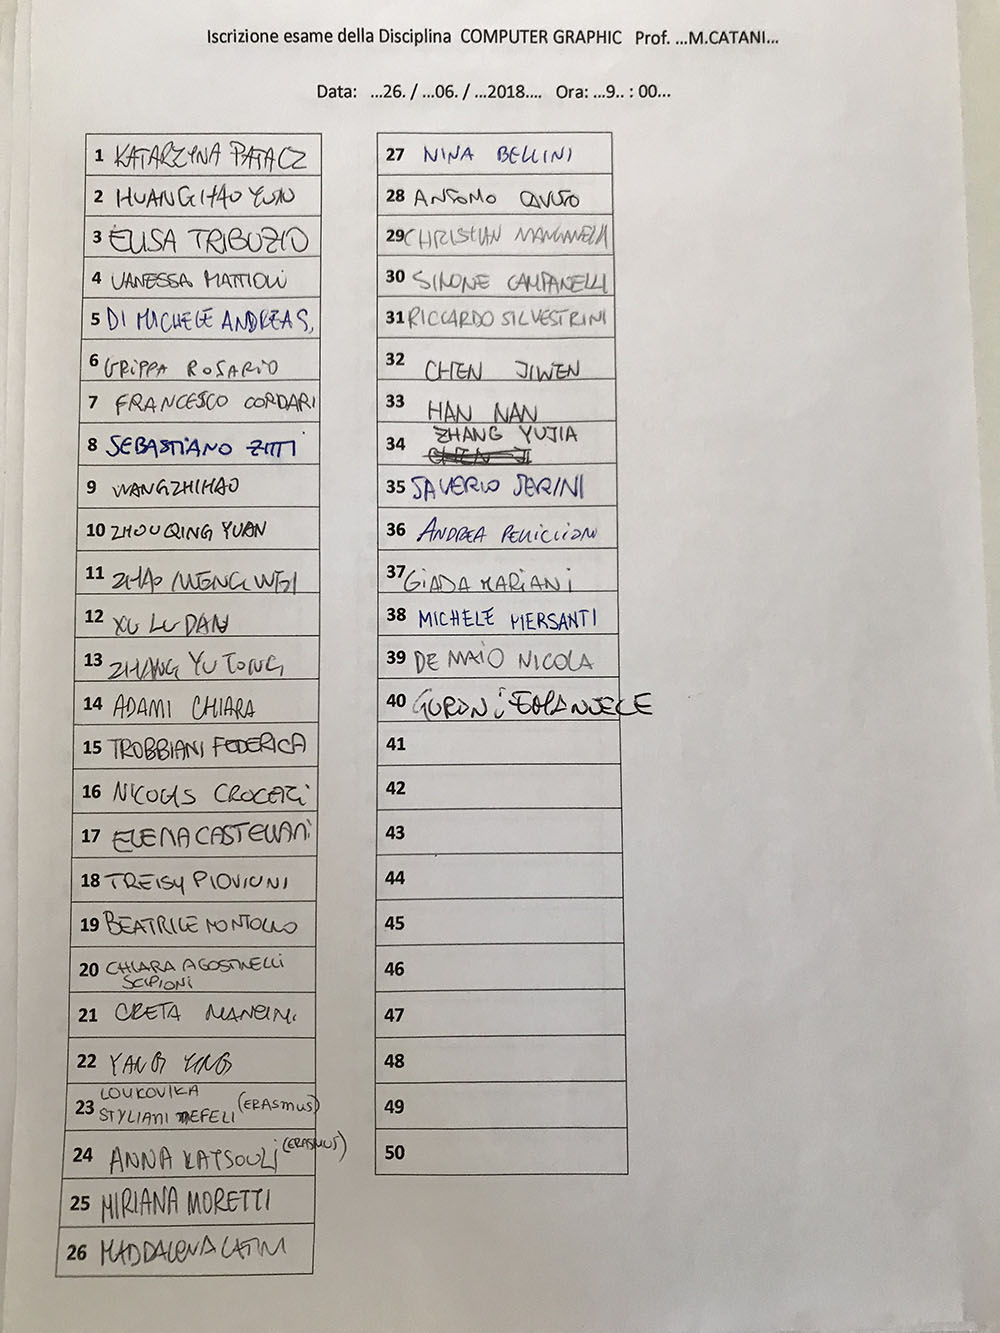 Iscrizione esame della Disciplina COMPUTER GRAPHIC Prof. ...M.CATANI...
Data: ...26. / ...06. / ...2018.... Ora: ...9.. : 00...
1 KATARZYNA PATACZ
2 HUANGHAO YUN
3 ELISA TRIBUZIO
4 VANESSA MATTIOLI
5 DI MICHELE ANDREA S.
6 GRIPPA ROSARIO
7 FRANCESCO CORDARI
8 SEBASTIANO ZITTI
9 WANGZHIHAO
10 ZHOUQING YUAN
11 ZHAO MENGWEI
12 XU LU DAN
13 ZHANG YUTONG
14 ADAMI CHIARA
15 TROBBIANI FEDERICA
16 NICOLAS CROCETTI
17 ELENA CASTELLANI
18 TREISY PIOVIONI
19 BEATRICE MONTOLLO
20 CHIARA AGOSTINELLI
SCIPIONI
21 GRETA MANCINI
22 YANG YING
23 LOUKOVIKA
STYLIANI DEFELI (ERASMUS)
24 ANNA KATSOULI (ERASMUS)
25 MIRIANA MORETTI
26 MADDALENA LATINI
27 NINA BELLINI
28 ANTONIO CAVUTO
29 CHRISTIAN MANGANELLI
30 SIMONE CAMPANELLI
31 RICCARDO SILVESTRINI
32 CHEN JIWEN
33 HAN NAN
34 ZHANG YUJIA
35 SAVERIO SERINI
36 ANDREA PELLICCIONI
37 GIADA MARIANI
38 MICHELE PIERSANTI
39 DE MAIO NICOLA
40 EMANUELE
41
42
43
44
45
46
47
48
49
50